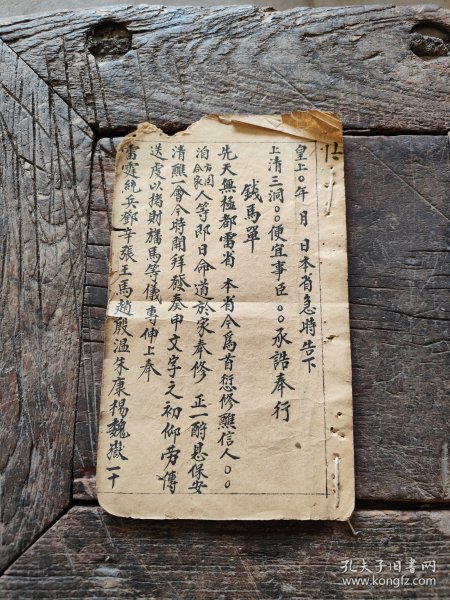 帖
皇上〇年 月 日本省急時告下
上清三洞〇〇便宜事臣〇〇承誥奉行
錢馬單
先天無極都雷省 本省今為首愆修醮信人〇〇
洎合家方園人等即日命道於家奉修 正一酧恳保安
清醮會今時開拜發奏申文字之初仰勞傳
送虔以楮財旛馬等儀專伸上奉
雷霆統兵鄧辛張王馬趙殷温朱康楊魏嶽一十
孔夫子旧书网
www.kongfz.com